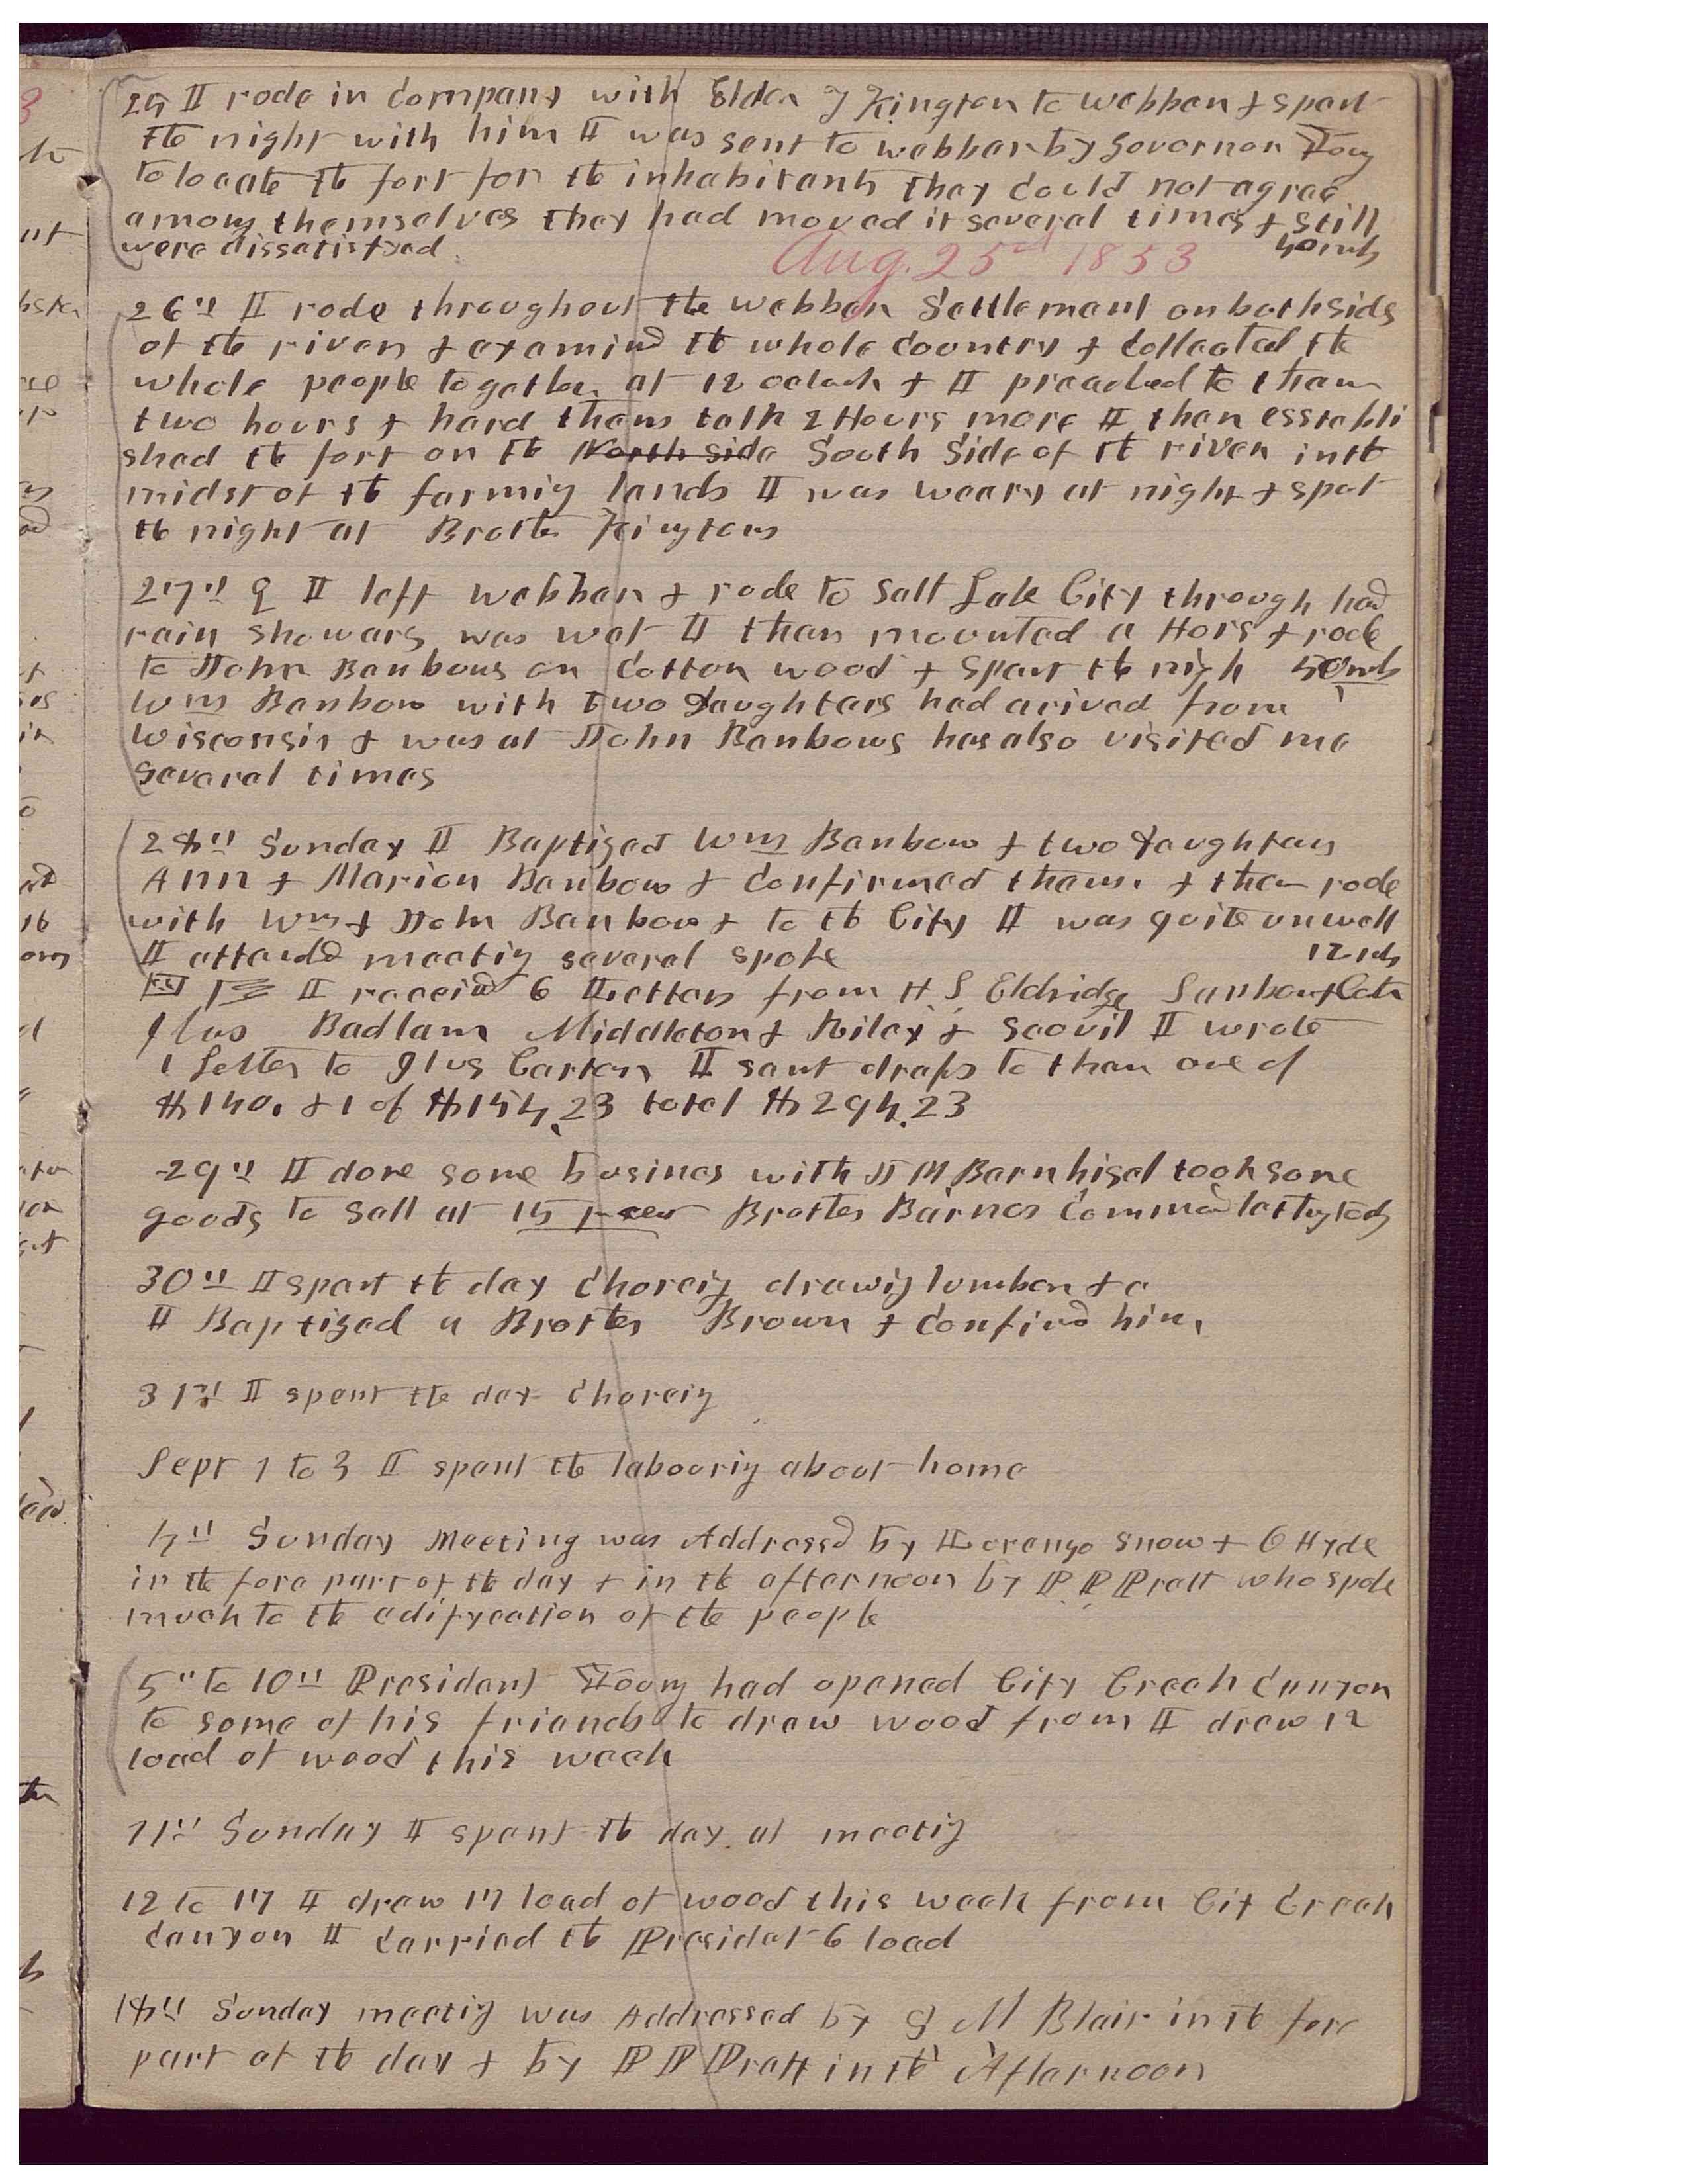 25 I rode in Company with Elder T Kington to webber & spent
the night with him I was sent to webber by Governor Young
to locate the fort for the inhabitants they could not agree
among themselves they had moved it several times & still
were dissatisfyed. 40 mls
Aug. 25th 1853
26th I rode throughout the webber Settlement on both sides
of the river & examind the whole Country & Collected the
whole people together at 12 oclock & I preached to them
two hours & herd them talk 2 Hours more I then esstabli
shed the fort on the North side South Side of the river in the
midst of the farmig lands I was weary at night & spet
the night at Brother Kingtons
27th I left webber & rode to Salt Lake City through had
rain showers was wet I then mounted a Hors & rode
to John Benbows on Cotton wood & spent the nigh 50 mls
Wm Benbow with two daughters had arived from
Wisconsin & was at John Benbows has also visited me
several times
28th Sunday I Baptized Wm Benbow & two daughters
Ann & Marion Benbow & Confirmed them. & then rode
with Wm & John Benbow & to the City I was quite unwell
I attend meetig several spoke 12 mls
I receivd 6 Letters from H. S. Eldridge
Ilus Badlam Middleton & Riley & Scovil I wrote
1 Letter to Ilus Carter I sent drafts to them one of
$140. & 1 of $154.23 total $294.23
29th I done some busines with J M Bernhisel took some
goods to sell at 15 per cent Brother Barnes
30th I spent the day Choreig drawig lumber & c
I Baptized a Brother Brown & Confirmd him
31st I spent the day Choreig
Sept 1 to 3 I spent the labourig about home
4th Sunday Meeting was Addressd by Lorenzo Snow & O Hyde
in the fore part of the day & in the afternoon by P. P. Pratt who spoke
much to the edifycation of the people
5th to 10th President Young had opened City Creek Canyon
to some of his friends to draw wood from I drew 12
load of wood this week
11th Sunday I spent the day at meetig
12 to 17 I drew 17 load of wood this week from Cit Creek
Canyon I Carried the Presidet 6 load
18th Sunday meetig was Addressed by S M Blair in the fore
part of the day & by P P Pratt in the Afternoon